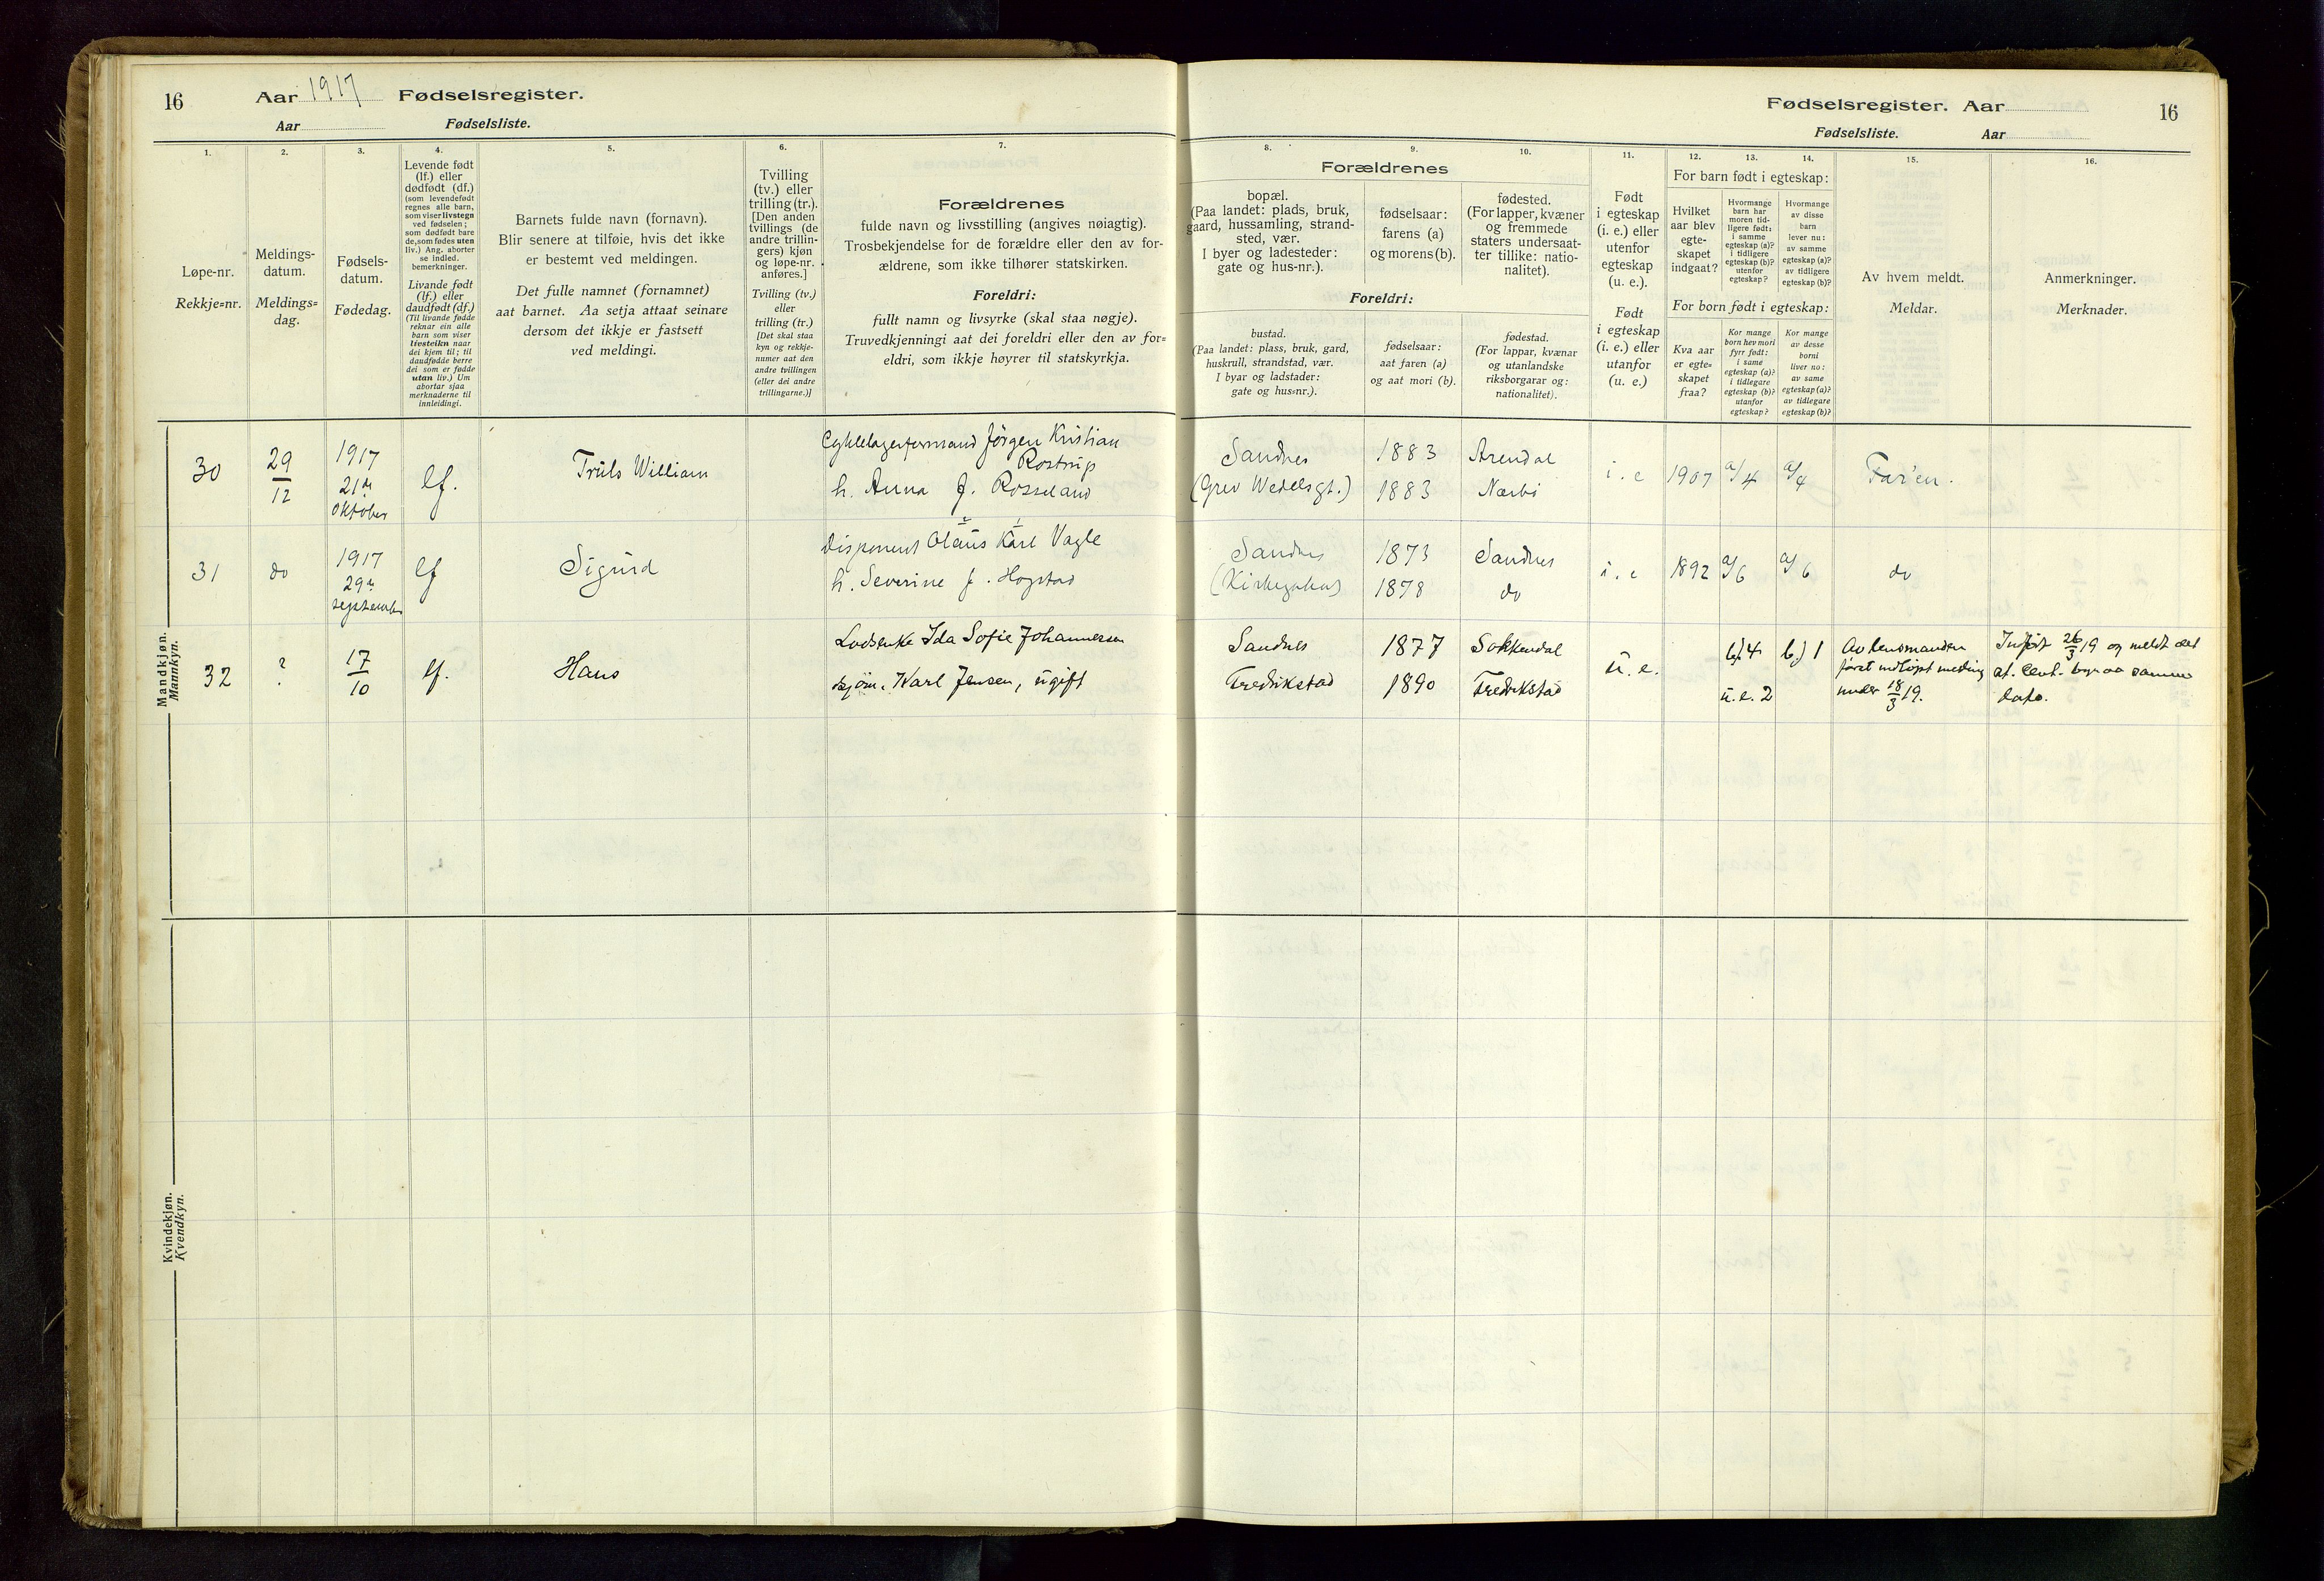 16 Aar 1917 Fødselsregister.
Aar Fødselsliste.
Fødselsregister. Aar 16
Fødselsliste. Aar
1.
Løpe-nr.
Rekkje=nr.
2.
Meldings-
datum.
Meldings=
dag.
3.
Fødsels-
datum.
Fødedag.
4.
Levende født
(lf.) eller
dødfødt (df.)
(som levendefødt
regnes alle barn,
som viser livstegn
ved fødselen;
som dødfødt bare
de, som fødes uten
liv.) Ang. aborter
se indled.
bemerkninger.
Livande født
(lf.) eller
daudfødt (df.)
(Til livande fødde
reknar ein alle
barn som viser
livsteikn naar
dei kjem til; til
daudfødde berre
dei som er fødde
utan liv.) Um
abortar sjaa
merknaderne til
innleidingi.
5.
Barnets fulde navn (fornavn).
Blir senere at tilføie, hvis det ikke
er bestemt ved meldingen.
Det fulle namnet (fornamnet)
aat barnet. Aa setja attaat seinare
dersom det ikkje er fastsett
ved meldingi.
6.
Tvilling
(tv.) eller
trilling (tr.).
[Den anden
tvillings (de
andre trillin-
gers) kjøn
og løpe-nr.
anføres.]
Tvilling (tv.)
eller
trilling (tr.)
[Det skal staa
kyn og rekkje-
numer aat den
andre tvillingen
(eller dei andre
trillingarne.)]
7.
Forældrenes
fulde navn og livsstilling (angives nøiagtig).
Trosbekjendelse for de forældre eller den av for-
ældrene, som ikke tilhører statskirken.
Foreldri:
fullt namn og livsyrke (skal staa nøgje).
Truvedkjenningi aat dei foreldri eller den av for=
eldri, som ikkje høyrer til statskyrkja.
Forældrenes
8.
bopæl.
(Paa landet: plads, bruk,
gaard, hussamling, strand-
sted, vær.
I byer og ladesteder:
gate og hus-nr.).
9.
fødselsaar:
farens (a)
og morens (b).
10.
fødested.
(For lapper, kvæner
og fremmede
staters undersaat-
ter tillike: natio-
nalitet).
Foreldri:
bustad.
(Paa landet: plass, bruk, gard,
huskrull, strandstad, vær.
I byar og ladstader:
gate og hus=nr.).
fødselsaar:
aat faren (a)
og aat mori (b).
fødestad.
(For lappar, kvænar
og utanlandske
riksborgarar og:
nationalitet).
11.
Født
i egteskap
(i. e.) eller
utenfor
egteskap
(u. e.).
Født
i egteskap
(i. e.) eller
utanfor
(u. e.)
12. 13. 14.
For barn født i egteskap:
Hvilket
aar blev
egte-
skapet
indgaat?
Hvormange
barn har
moren tid-
ligere født:
i samme
egteskap (a)?
i tidligere
egteskap (b)?
utenfor
egteskap?
Hvormange
av disse
barn
lever nu:
av samme
egteskap (a)?
av tidligere
egteskap (b)?
For born født i egteskap:
Kva aar
er egte=
skapet
fraa?
Kor mange
born hev mori
fyrr født:
i same
egteskap (a)?
i tidlegare
egteskap (b)?
utanfor
egteskap?
Kor mange
av desse
borni
liver no:
av same
egteskap (a)?
av tidlegare
egteskap (b)?
15.
Av hvem meldt.
Meldar.
16.
Anmerkninger.
Merknader.
Mandkjøn.
Mannkyn.
30 29/12 1917 21de oktober lf. Truls William
Cykkelagerformand Jörgen Kristian
Rostrup
h. Anna f. Rosseland
Sandnes 1883 Arendal
(Grev Wedels gt.) 1883 Nærbö
i. e 1907 a/4 a/4 Far'en.
31 do 1917 29de september lf Sigurd
Disponent Olaus Karl Vagle
h. Severine f. Hogstad
Sandnes 1873 Sandnes
(Kirkegaten) 1878 do
i. e 1892 a/6 a/6 do
32 ? 17/10 lf. Hans
Lodsenke Ida Sofie Johannessen
Karl Jensen, ugift
Sandnes 1877 Sokkendal
Fredrikstad 1890 Fredrikstad
u. e. b) 4 b) 1
u. e. 2
Av lensmanden
först indlöpt melding
under 18/3 19.
Indfört 26/3 19 og meldt det
st. Cent. byraa samme
dato.
Kvindekjøn.
Kvendkyn.